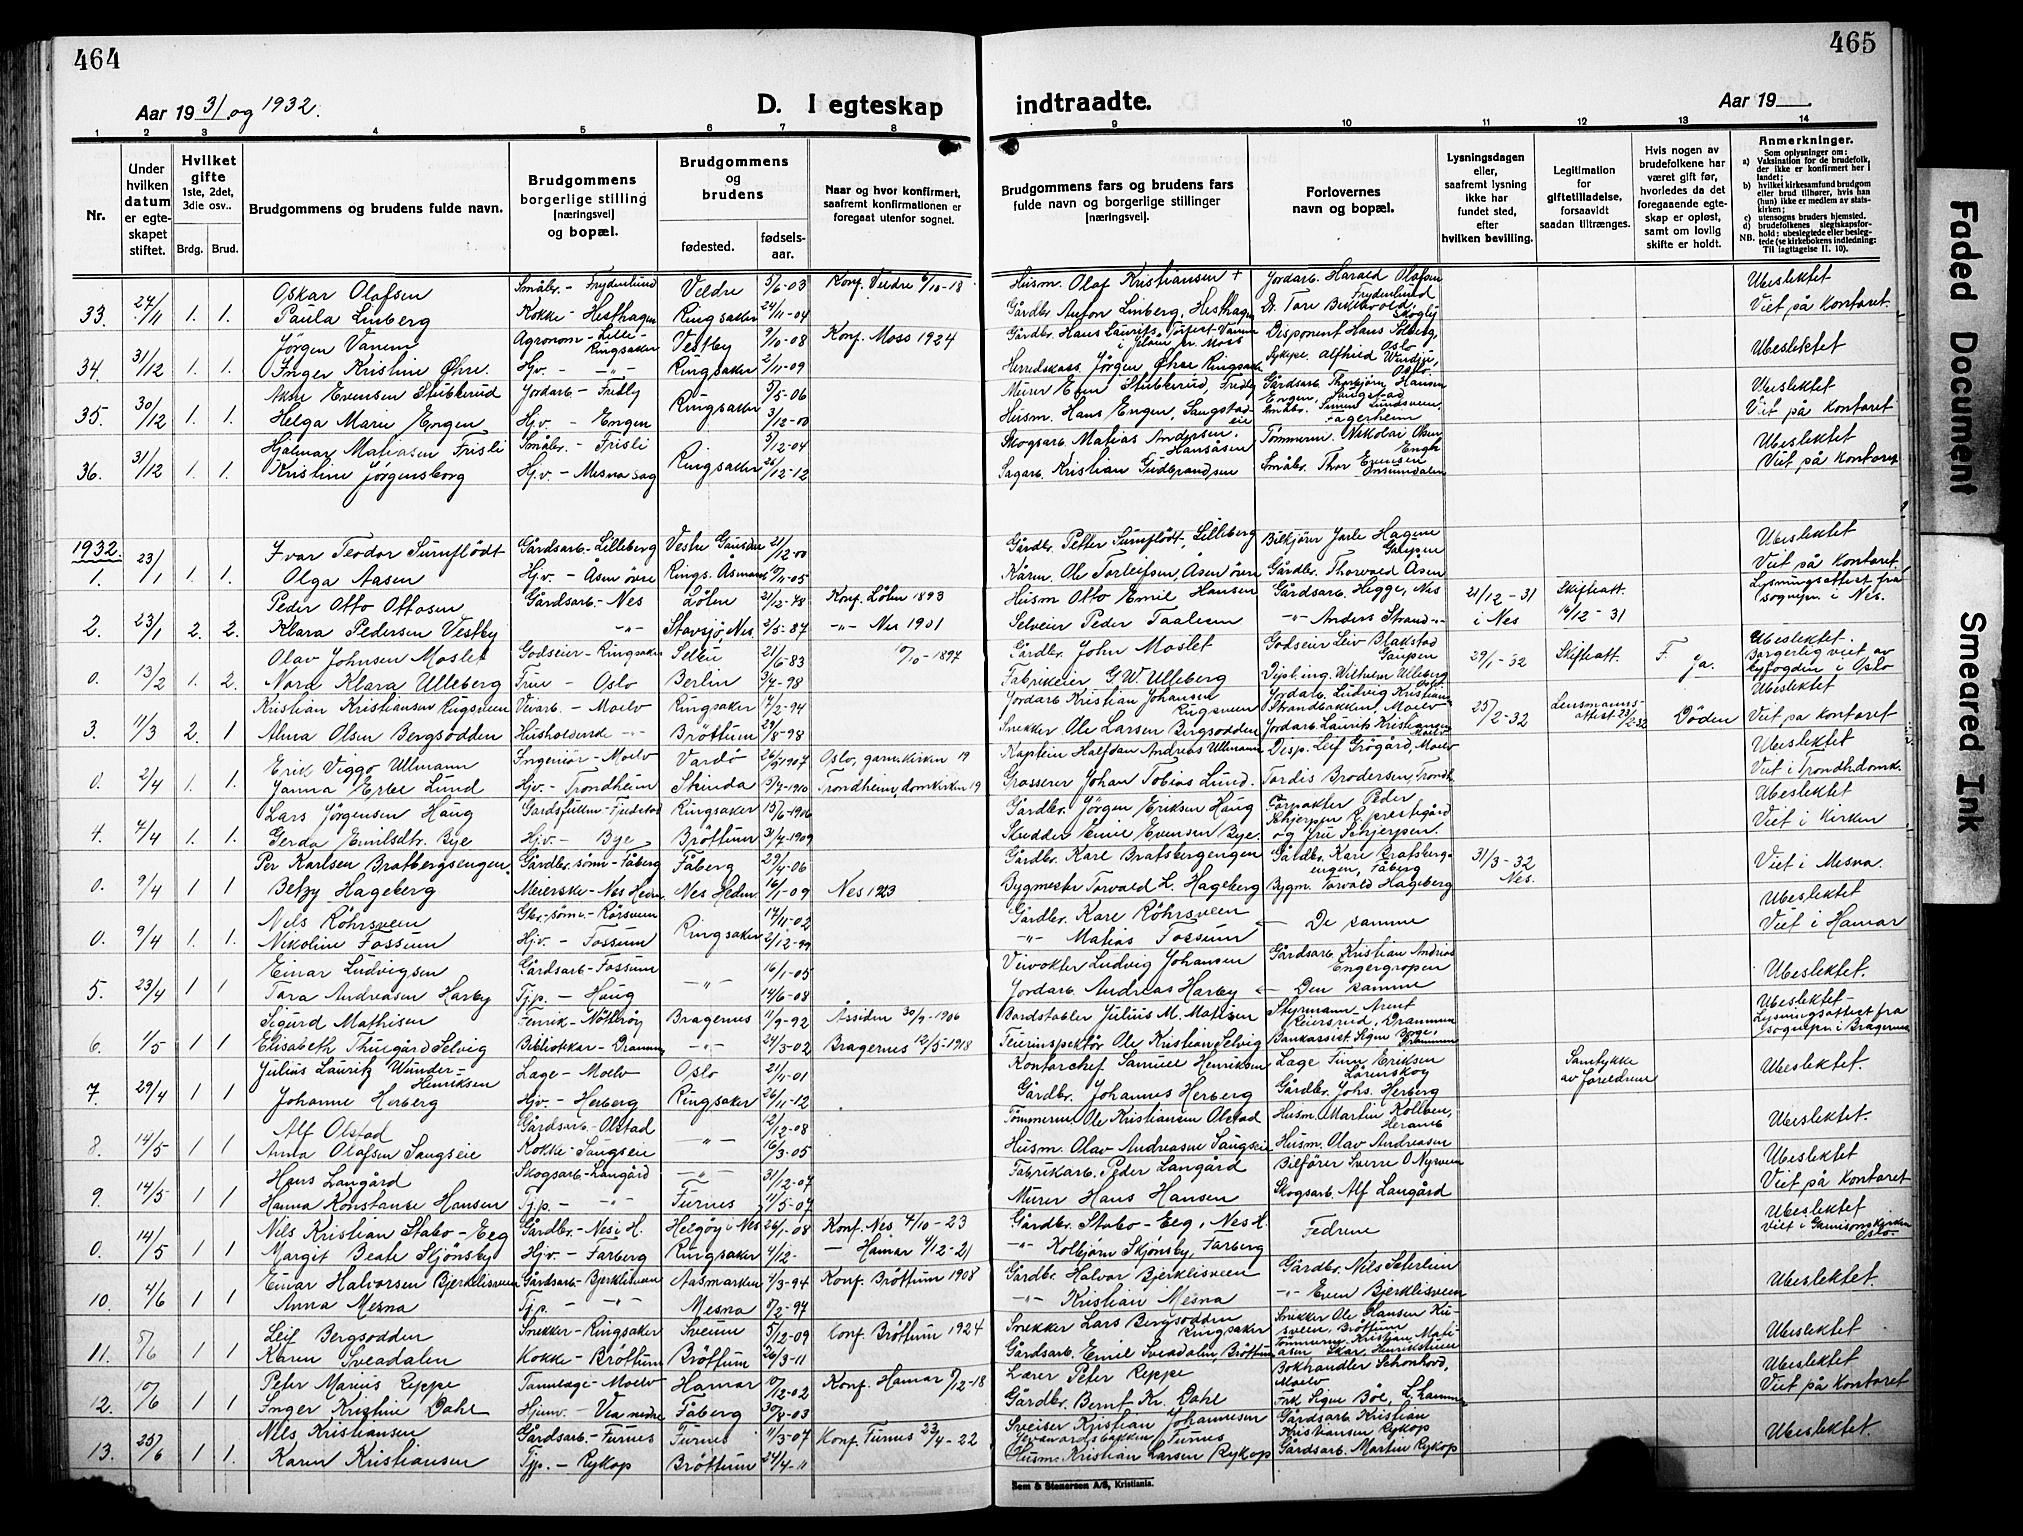 464
Aar 1931 og 1932.
D. I egteskap
1 2 3 4 5 6 7 8
Nr.
Under hvilken datum er egteskapet stiftet.
Hvilket gifte 1ste, 2det, 3die osv..
Brdg. Brud.
Brudgommens og brudens fulde navn.
Brudgommens borgerlige stilling [næringsvei] og bopæl.
Brudgommens og brudens
fødested. fødsels-aar.
Naar og hvor konfirmert, saafremt konfirmationen er foregaat utenfor sognet.
Oskar Olafsen Småbr. - Frydenlund Veldre 5/6-03 Konf. Veldre 6/10-18
33. 27/11 1. 1. Paula Linberg Kokke - Hesthagen Ringsaker 24/11-04
Jørgen Vanem Agronom - Lille-Ringsaker Vestby 9/10-08 Konf. Moss 1924
34. 31/12 1. 1. Inger Kristine Øhre. Hjv. - -"- Ringsaker 2/11-09
Evensen Stubberud Jordarb - Fredly 5/5-06
35. 30/12 1. 1. Helga Marie Engen Hjv. - Engen Ringsaker 3/12-00
Hjalmar Matiasen Frisli Småbr. - Frisli 5/12-04
36. 31/12 1. 1. Kristine Jørgensborg Hjv. - Mesna sag Ringsaker 26/12-12
1932.
Ivar Teodor Surnflödt Gårdsarb. - Lilleberg Vestre Gausdal 21/12-00
1. 23/1 1. 1. Olga Aasen Hjv. - Åsen övre Rings. Åsmark
Peder Otto Ottosen Gårdsarb. - Nes Løten 21/12-78 Konf. Løten 1893
2. 23/1 2. 2. Klara Pedersen Vestby -"- Stavsjø, Nes 2/5-87 -"- Nes 1901
Olav Johnsen Moslet Godseier - Ringsaker Selbu 21/6-83 10/10-1897
0. 13/2 1. 2. Nora Klara Ulleberg Frue - Oslo Berlin 3/7-98
Kristian Kristiansen Ringsveen Veiarb. - Moelv Ringsaker 7/2-94
3. 11/3 2. 1 Alma Olsen Bergsodden Husholderske -"- Bröttum 29/8-98
Erik Viggo Ullmann Ingeniör - Moelv Vardö 1907 Oslo, garn.kirken 19
0. 2/4 1. 1. Janna Erbe Lund Hjv. - Trondheim Strinda 1910 Trondheim, domkirken 19
Lars Jörgensen Haug Ringsaker 15/6-1906
4. 4/4 1. 1. Gerda Emilsdtr. Bye Hjv. - Bye Bröttum 31/7-1909
Per Karlsen Bratbergsengen Gårdbr. sönn - Fåberg Fåberg 29/1-06
0. 9/4 1 1 Betzy Hageberg Meierske - Nes Hedm. Nes Hedm. 16/1-09 Nes 1923
Nils Röhrsveen Gbr.-sönn - Rörsveen 14/11-02
0. 9/4 1. 1. Nikoline Fossum Hjv. - Fossum Ringsaker 2/12-99
Einar Ludvigsen Gårdsarb - Fossum 16/1-05
5. 23/4 1 1 Tara Andreasen Harby Tjp. - Haug -"- 14/6-08
Sigurd Mathisen Fenrik - Nötteröy Bragernes 11/9-92 Assiden 30/9-1906
6. 1/5 1 1 Elisabeth Thuegård Selvig Bibliotekar - Drammen -"- 24/3-02 Bragernes 12/5-1918
Julius Lauritz Wunder-Henriksen Læge - Moelv Oslo 21/11-01
7. 29/4 1 1 Johanne Herberg Hjv. - Herberg Ringsaker 26/11-12
Alf Olstad Gårdsarb. - Olstad 12/12-08
8. 14/5 1 1 Anna Olafsen Saugseie Kokke - Saugseie -"- 16/3-05
Hans Langård Skogsarb - Langård -"- 31/12-07
9. 14/5 1 1 Hanna Konstanse Hansen Tj.p. - -"- Furnes 11/5-07
Nils Kristian Stabo - Eeg Gårdbr. - Nes i H. Helgöy i Nes 26/1-08 Konf. Nes 4/10-23
0. 14/5 1 1 Margit Beate Skjönsby Hjv. - Farberg Ringsaker 4/12- - Hamar 4/12-21
Einar Halvorsen Bjerklisveen Gårdsarb - Bjerklisveen Aasmarken 4/3-94 Konf. Bröttum 1908
10. 4/6 1 1 Anna Mesna Tj.p. - -"- Mesna 1/2-97
Leif Bergsodden Snekker - Ringsaker Sveum 5/12-09 Konf. Bröttum 1924
11. 5/6 1 1 Karen Sveadalen Kokke - Bröttum Bröttum 26/3-11
Peter Marius Reppe Tannlæge - Moelv Hamar 10/12-02 Konf. Hamar 9/12-18
12. 10/6 1 1 Inger Kristine Dahl Hjemv. - Vea nedre Fåberg 30/8-03
Nils Kristiansen Gårdsarb. - Furnes Furnes 11/3-07 Konf. Furnes 23/4-22
13. 25/6 1 1. Karen Kristiansen Tjp. - Rykop Bröttum 24/4-11
465
indtraadte.
Aar 19
9 10 11 12 13 14
Brudgommens fars og brudens fars fulde navn og borgerlige stillinger [næringsvei].
Forlovernes navn og bopæl.
Lysningsdagen eller, saafremt lysning ikke har fundet sted, efter hvilken bevilling.
Legitimation for giftetilladelse, forsaavidt saadan tiltrænges.
Hvis nogen av brudefolkene har været gift før, hvorledes da det foregaaende egteskap er opløst, samt om lovlig skifte er holdt.
Anmerkninger.
Som oplysninger om:
a) Vaksination for de brudefolk, der ikke er konfirmert her i landet;
b) hvilket kirkesamfund brudgom eller brud tilhører, hvis han (hun) ikke er medlem av statskirken;
c) utensogns bruders hjemsted.
d) brudefolkenes slegtskapsforhold: ubeslegtede eller beslegtede (se kirkebokens indledning: Til Iagttagelse II. 10).
NB.
Husm. Olaf Kristiansen + Jordarb. Harald Olafsen Frydenlund Ubeslektet
Gårdbr. Anton Linberg, Hesthagen Skogly Viet på kontoret.
Gårdbr. Hans Laurits Torfest Vanem Disponent Hans Solberg, Oslo Ubeslektet
Herredskass. Jörgen Øhre Ringsaker Alfhild Oslo
Murer Even Stubberud, Fredly Gårdsarb. Thorbjörn Hansen Engen, Ubeslektet
Husm. Hans Engen, Saugstadeie Fagerheim Viet på kontoret
Skogsarb. Matias Andersen, Hansåsen Tømmerm. Nikolai Olsen Engh Ubeslektet
Sagarb. Kristian Gudbrandsen Småbr. Thor Evensen Viet på kontoret
Gårdbr. Petter Surnflödt, Lilleberg Bilkjörer Jarle Hagene Gaupen Ubeslektet
Ole Torleifsen, Åsen övre Gårdbr. Thorvald Åsen Viet på kontoret
Husm Otto Emil Hansen Gårdsarb. Hegge, Nes 21/12-31 Skifteatt. Lysningsattest fra
Selveier Peder Taalesen -"- Anders Strand -"- i Nes 16/12-31 sognepr. i Nes.
Gårdbr. John Moslet Godseier Leiv Blakstad Gaupen 29/1-32 Skifteatt. F. ja. Ubeslektet. Borgerlig viet av
Fabrikeier G. W. Ulleberg Wilhelm Ulleberg byfogden i Oslo
Jordarb Kristian Johansen Ringsveen Jordarb. Ludvig Kristiansen Strandbakken, Moelv 25/2-32 Lensmanns-attest 23/2-32 Döden Ubeslektet
Snekker Ole Larsen Bergsodden Jordarb Laurits Kristiansen Moelv Viet på kontoret
Kaptein Halfdan Andreas Ullmann Disp. Leif Grögård, Moelv Ubeslektet
Grosserer Johan Tobias Lund. Tordis Brodersen, Trondh. Viet i Trondh. domk.
Gårdbr. Jörgen Eriksen Haug Forpakter Peder Schjerpen R. prestegård Ubeslektet
Skredder Emil Evensen Bye. og fru Schjerpen. Viet i kirken
Gårdbr. Karl Bratsbergengen Gårdbr. Karl Bratsbergengen, Fåberg 31/3-32 Nes. Viet i Mesna.
Bygmester Torvald L. Hageberg Bygm. Torvald Hageberg
Gårdbr. Karl Röhrsveen De samme Ubeslektet
-"- Matias Fossum Viet i Hamar
Veivokter Ludvig Johansen Gårdsarb. Kristian Andrias Engergropen Ubeslektet.
Jordarb. Andreas Harby Den samme
Bordstabler Julius M. Matisen Styrmann Arent Reiersrud, Drammen Ubeslektet Lysningsattest fra
Feierinspektör Ole Kristian Selvig Bankassist. Signe Berge, Drammen sognepr. i Bragernes
Kontorchef Samuel Henriksen Læge Finn Eriksen Lörenskog Samtykke av foreldrene Ubeslektet.
Gårdbr. Johannes Herberg Gårdbr. Johs. Herberg
Tömmerm. Ole Kristiansen Olstad Husm Martin Kolloen, Ubeslektet.
Husm. Olav Andreasen Saugseie Husm. Olav Andreasen
Fabrikarb. Peder Langård Bilförer Sverre O Nyveen Ubeslektet
Murer Hans Hansen Skogsarb. Alf Langård Viet på kontoret
Gårdbr. Stabo - Eeg, Nes H. Fedrene Ubeslektet
-"- Kolbjörn Skjönsby, Farberg Viet i Garnisonskirken Oslo.
Gårdbr. Halvor Bjerklisveen Gårdbr. Nils Seterlien Ubeslektet.
-"- Kristian Mesna -"- Even Bjerklisveen
Snekker Lars Bergsodden Ringsaker Snekker Ole Hansen Bröttum Ubeslektet
Gårdsarb. Emil Sveadalen, Bröttum
Lærer Peter Reppe Bokhandler Schönhord, Moelv Ubeslektet
Gårdbr. Bernt Kr. Dahl Frk Signe Böe, L.hammer Viet på kontoret
Sveiser Kristian Johannesen Furnes Gårdsarb. Kristian Kristiansen Rykop Ubeslektet
Husm. Kristian Larsen Rykop Gårdsarb. Martin Rykop
Sem & Stenersen A/S, Kristiania.
Faded Document
Smeared Ink